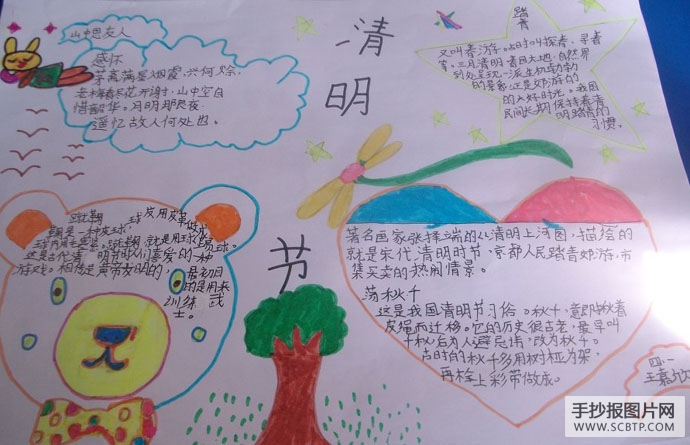 清
明
节
山中思友人
感怀
茅斋满是烟霞,兴何赊,
老梅看尽花开谢,山中空自
惜韶华。月明那良夜,
遥忆故人何处也。
踏
青
又叫春游。古时叫探春、寻春
等。三月清明,春回大地,自然界
到处呈现一派生机勃勃
的景象,正是郊游的
大好时光。我国
民间长期保持着清
明踏青的
习惯。
蹴鞠
鞠是一种皮球,球皮用皮革做成,
球内用毛塞紧。蹴鞠,就是用球去踢球。
这是古代清明节时人们喜爱的一种
游戏。相传是黄帝发明的,最初目
的是用来
训练武
士。
著名画家张择端的《清明上河图,描绘的
就是宋代清明时节,京都人民踏青郊游,市
集买卖的热闹情景。
荡秋千
这是我国清明节习俗。秋千,意即揪着
皮绳而迁移。它的历史很古老,最早叫
千秋,后为人避忌讳,改为秋千。
古时的秋千多用树桠为架,
再栓上彩带做成。
四.一
王嘉欣
手抄报图片网
WWW.SCBTP.COM